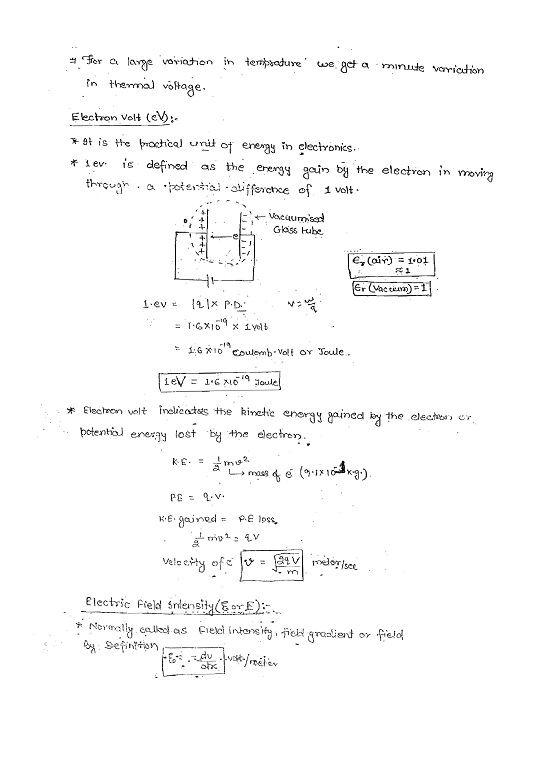 ⇒ For a large variation in tempsature we get a minute varriation
in thermal voltage.
Electron Volt (eV):-
* It is the practical unit of energy in electronics.
* 1ev. is defined as the energy gain by the electron in moving
through a potential difference of 1 volt.
← Vacuumised
Glass tube
ϵr (air) = 1.01
≈1
ϵr (Vaccum) = 1
1.ev = |q| × P.D. V = w/q
= 1.6×10⁻¹⁹ × 1 volt
= 1.6×10⁻¹⁹ Coulomb-Volt or Joule.
1eV = 1.6×10⁻¹⁹ Joule
* Electron volt indicates the kinetic energy gained by the electron or
potential energy lost by the electron.
K.E. = 1/2 mv²
↳ mass of e⁻ (9.1×10⁻³¹ k.g.)
PE = q.V.
K.E. gained = P.E loss
1/2 mv² = qV
Velocity of e⁻ v = √(2qV/m) meter/sec
Electric Field Intensity (ξ or E):-
* Normally called as Field intensity, field gradient or field
By Definition
ξ = dv/dx volt/meter